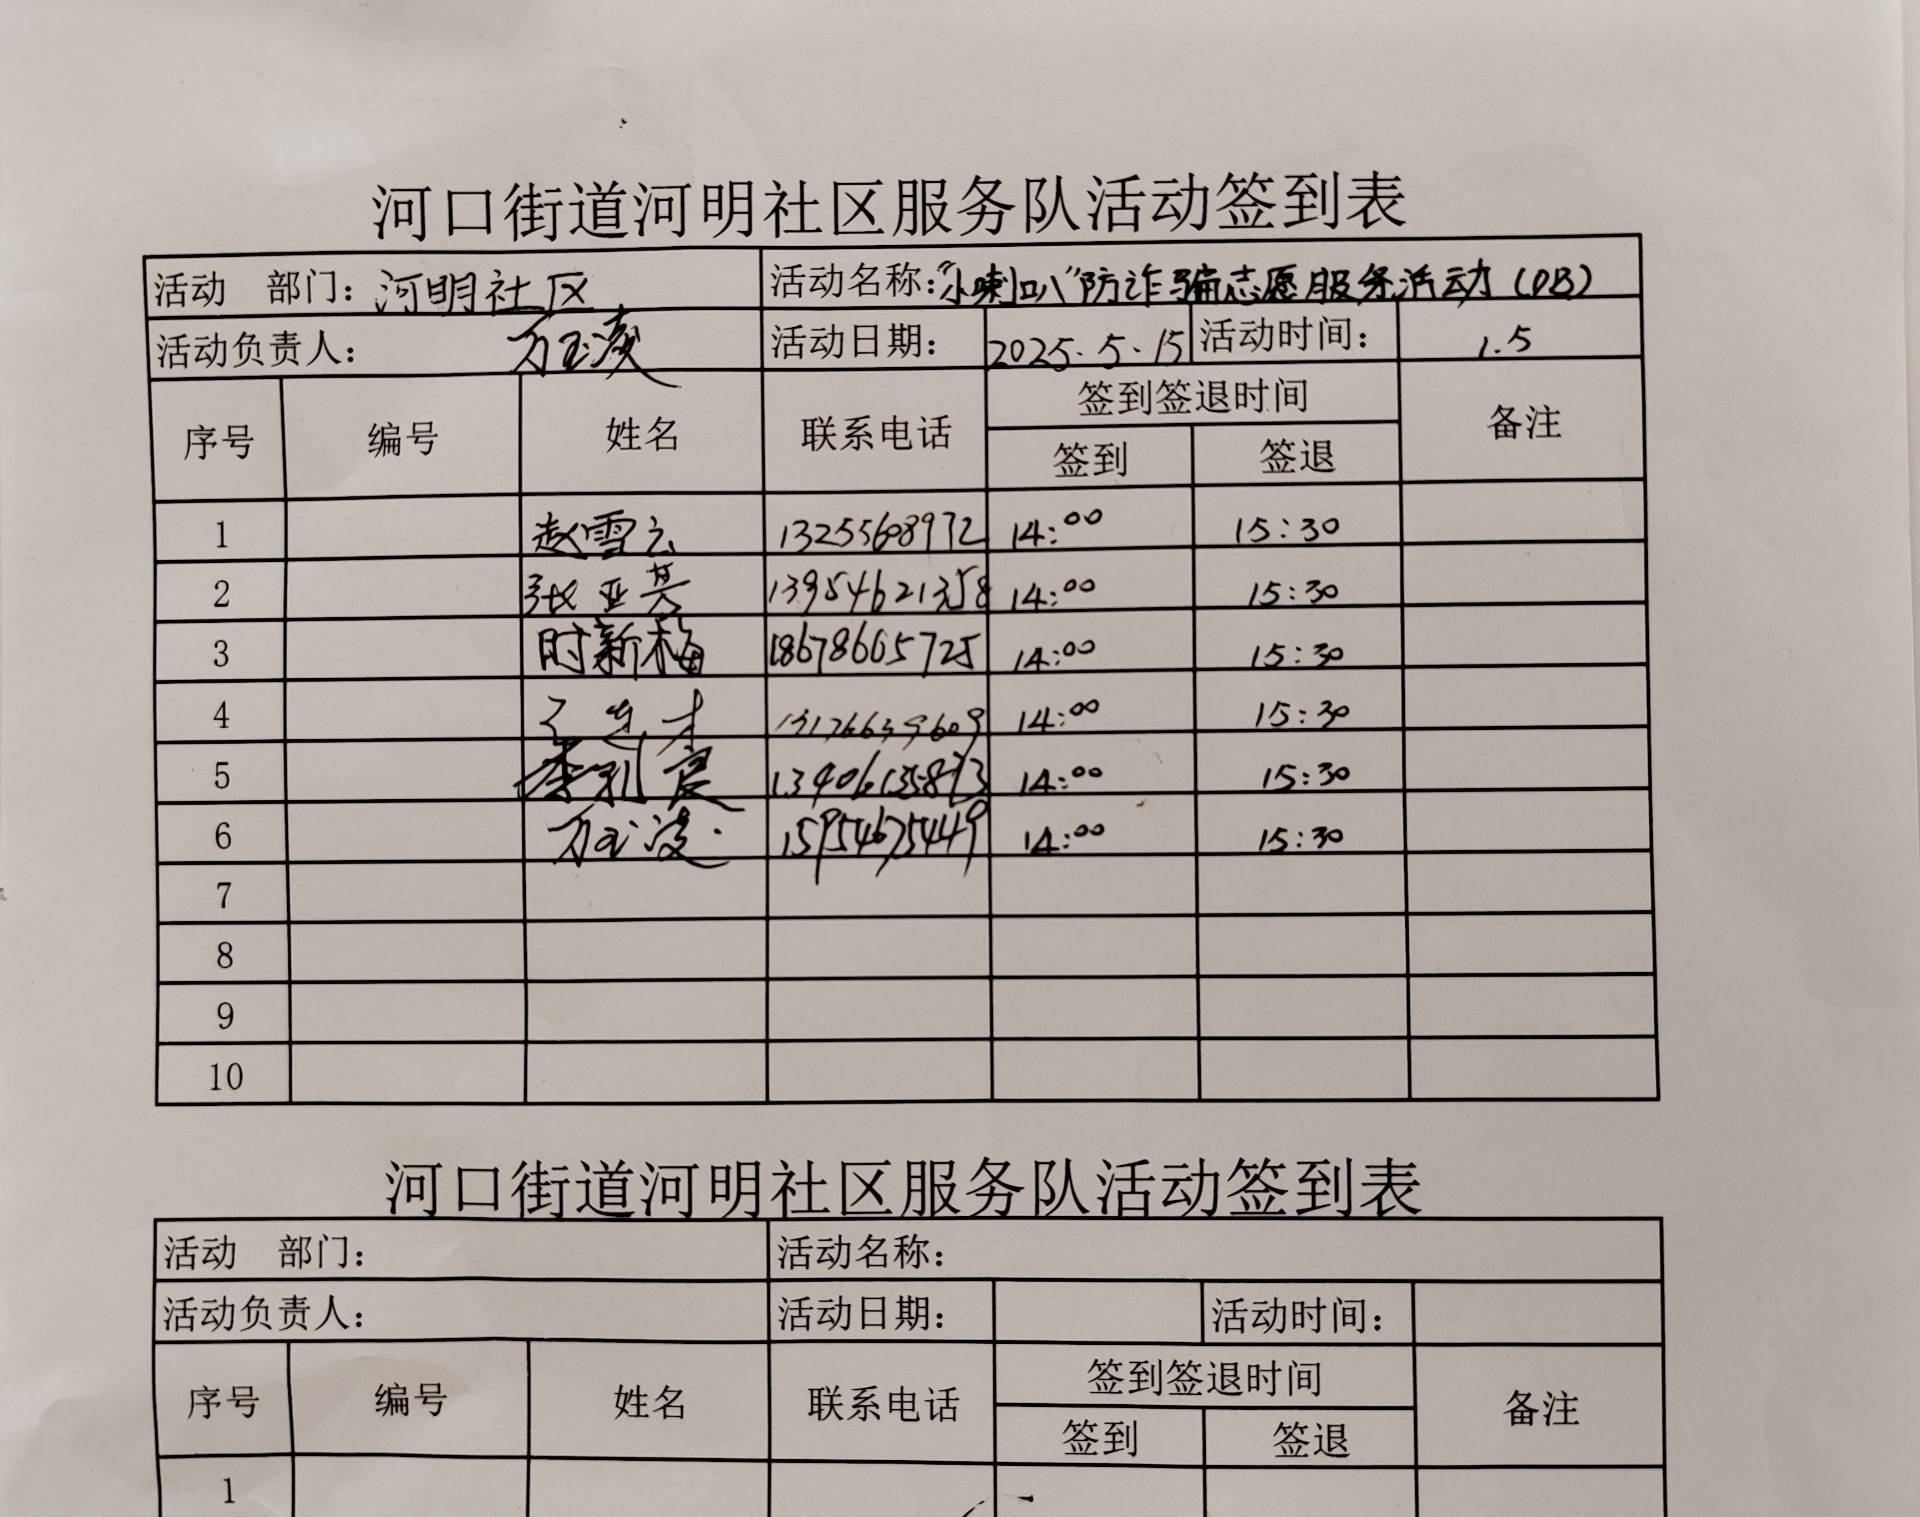 河口街道河明社区服务队活动签到表
活动 部门：河明社区 活动名称："小喇叭"防诈骗志愿服务活动（08）
活动负责人：万玉凌 活动日期：2025.5.15 活动时间：1.5
序号 编号 姓名 联系电话 签到签退时间 备注
签到 签退
1 赵雪云 13255608972 14:00 15:30
2 张亚芬 13954621358 14:00 15:30
3 时新梅 18678665725 14:00 15:30
4 14:00 15:30
5 14:00 15:30
6 万玉凌 15954675449 14:00 15:30
7
8
9
10
河口街道河明社区服务队活动签到表
活动 部门： 活动名称：
活动负责人： 活动日期： 活动时间：
序号 编号 姓名 联系电话 签到签退时间 备注
签到 签退
1